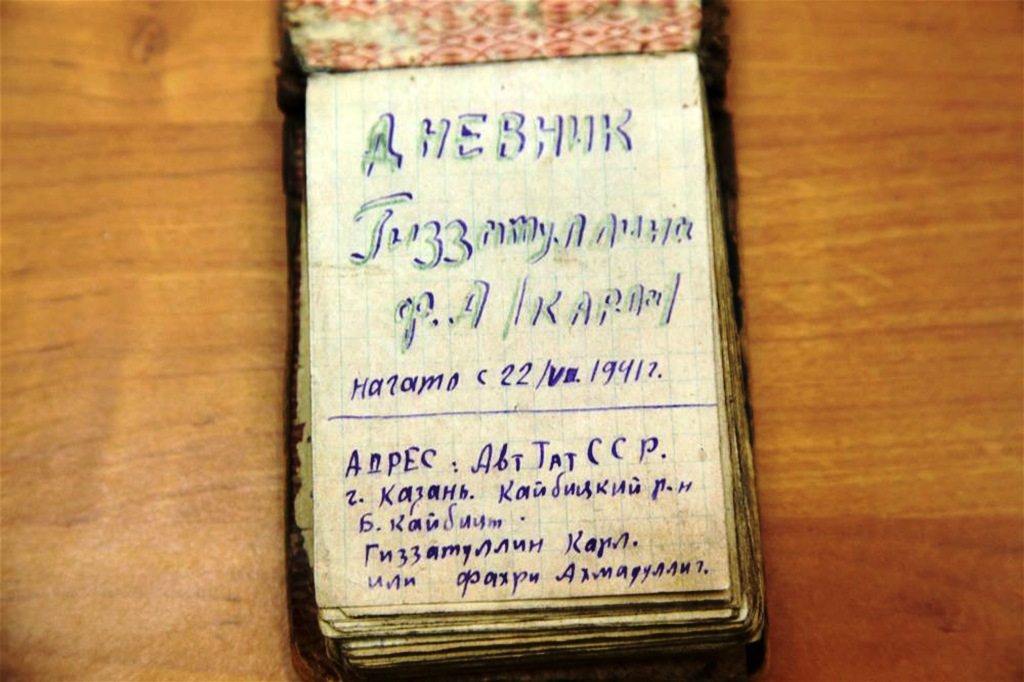 ДНЕВНИК
Гиззатуллина
Ф.А /КАРЛа/
начато с 22/VII. 1941г.
АДРЕС: Авт Тат ССР.
г. Казань. Кайбицкий р-н
Б. Кайбицы.
Гиззатуллин Карл.
или Фахри Ахмадуллиг.